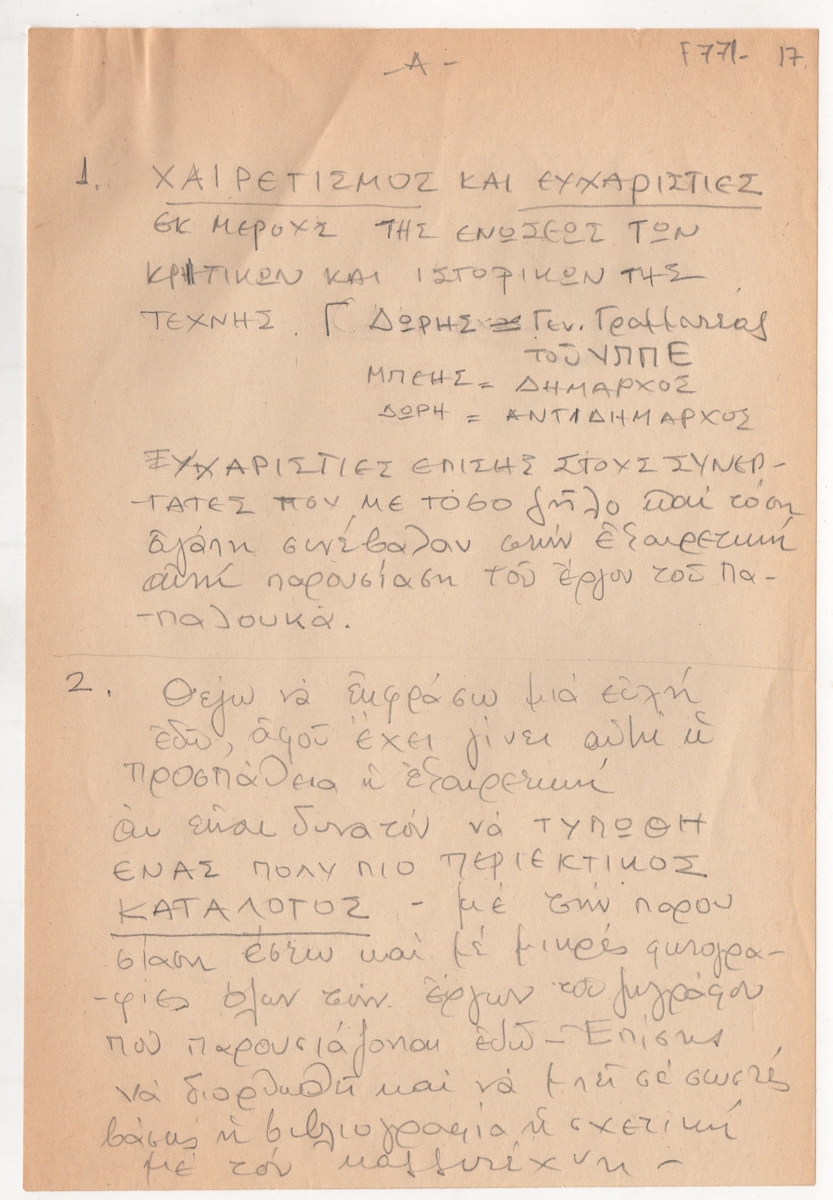 -A-
F771- 17
1. ΧΑΙΡΕΤΙΣΜΟΣ ΚΑΙ ΕΥΧΑΡΙΣΤΙΕΣ
ΕΚ ΜΕΡΟΥΣ ΤΗΣ ΕΝΩΣΕΩΣ ΤΩΝ
ΚΡΗΤΙΚΩΝ ΚΑΙ ΙΣΤΟΡΙΚΩΝ ΤΗΣ
ΤΕΧΝΗΣ. Γ ΔΩΡΗΣ = Γεν. Γραμματέας
τοῦ ΥΠΠΕ
ΜΠΕΗΣ = ΔΗΜΑΡΧΟΣ
ΔΩΡΗ = ΑΝΤΙΔΗΜΑΡΧΟΣ
ΕΥΧΑΡΙΣΤΙΕΣ ΕΠΙΣΗΣ ΣΤΟΥΣ ΣΥΝΕΡ-
-ΓΑΤΕΣ ΠΟΥ ΜΕ ΤΟΣΟ ζῆλο καί τόση
ἀγάπη συνέβαλαν στήν ἐξαιρετική
αὐτή παρουσίαση τοῦ ἔργου τοῦ Πα-
-παλουκά.
2. Θέλω νὰ ἐκφράσω μιά εὐχή
ἐδῶ, ἀφοῦ ἔχει γίνει αὐτή ἡ
προσπάθεια ἡ ἐξαιρετική
ἄν εἶναι δυνατόν νά ΤΥΠΩΘΗ
ΕΝΑΣ ΠΟΛΥ ΠΙΟ ΠΕΡΙΕΚΤΙΚΟΣ
ΚΑΤΑΛΟΓΟΣ - μέ τήν παρου
σίαση ἔστω καί μέ μικρές φωτογρα-
-φίες ὅλων τῶν ἔργων του ζωγράφου
πού παρουσιάζονται ἐδῶ - Ἐπίσης
νά διορθωθῆ καί νά μπεῖ σέ σωστές
βάσεις ἡ βιβλιογραφία ἡ σχετική
μέ τόν καλλιτέχνη -